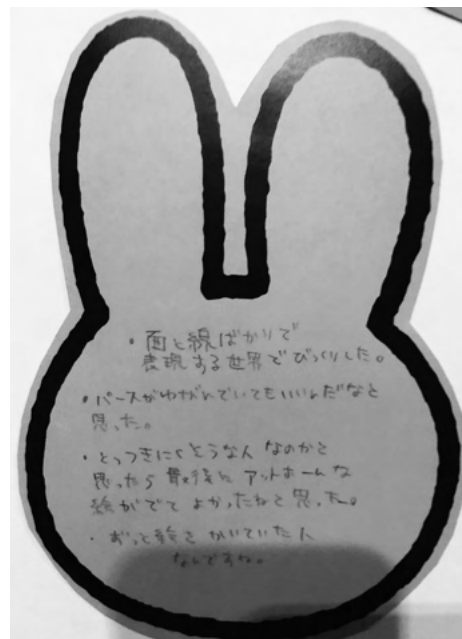 ・面と線ばかりで
表現する世界でびっくりした。
・パースがゆがんでいてもいいんだなと
思った。
・とっつきにくそうな人なのかと
思ったら最後にアットホームな
絵がでてよかったねと思った。
・ずっと絵をかいていた人
なんですね。